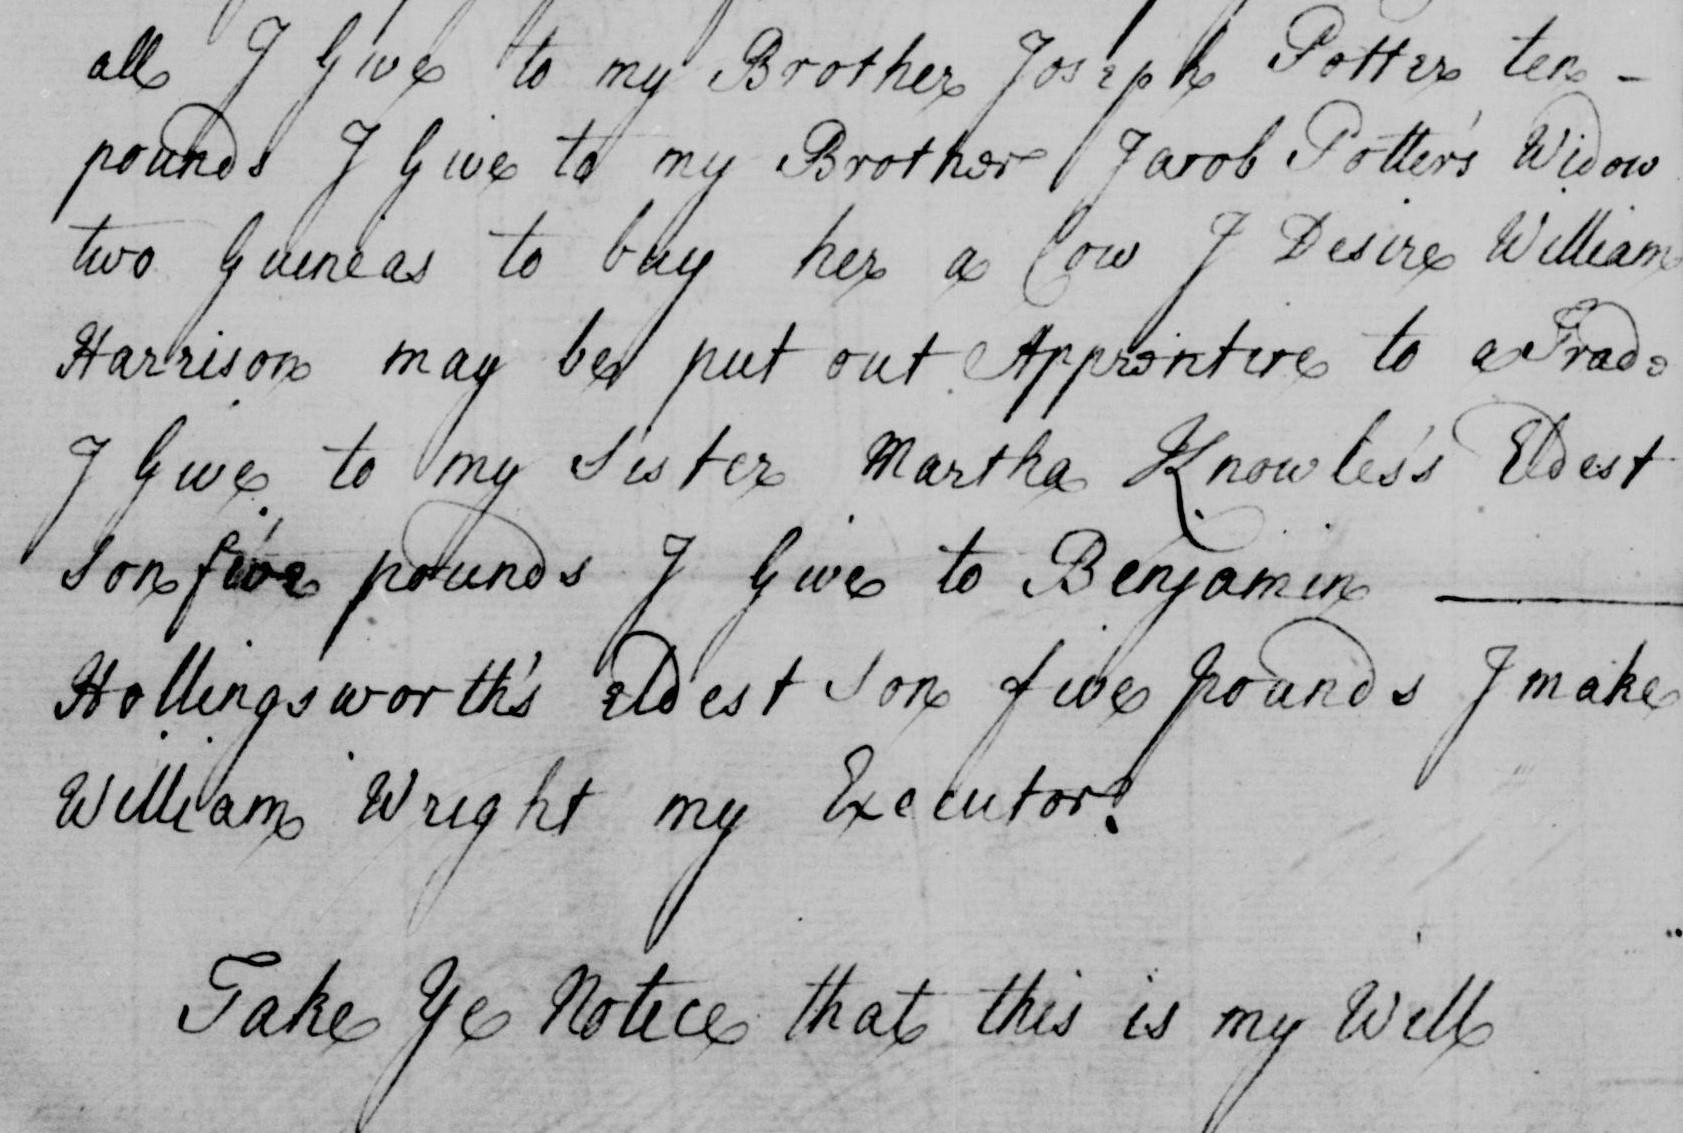 all I Give to my Brother Joseph Potter ten -
pounds I Give to my Brother Jacob Potter's Widow
two Guineas to buy her a Cow I Desire William
Harrison may be put out Apprentice to a Trade
I Give to my Sister Martha Knowles's Eldest
son five pounds I Give to Benjamin
Hollingsworth's eldest son five pounds I make
William Wright my Executor.
Take Ye Notice that this is my Will